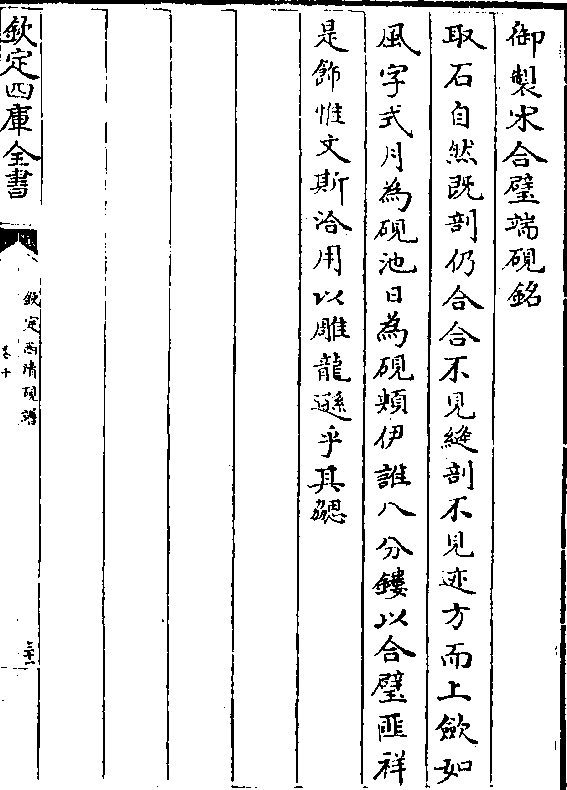 御製宋合璧端硯銘
取石自然既剖仍合合不見縫剖不見迹方而上斂如
風字式月為硯池日為硯頰伊誰八分鏤以合璧匪祥
是飾惟文斯洽用以雕龍遜乎其勰
欽定四庫全書
欽定西清硯譜
卷十